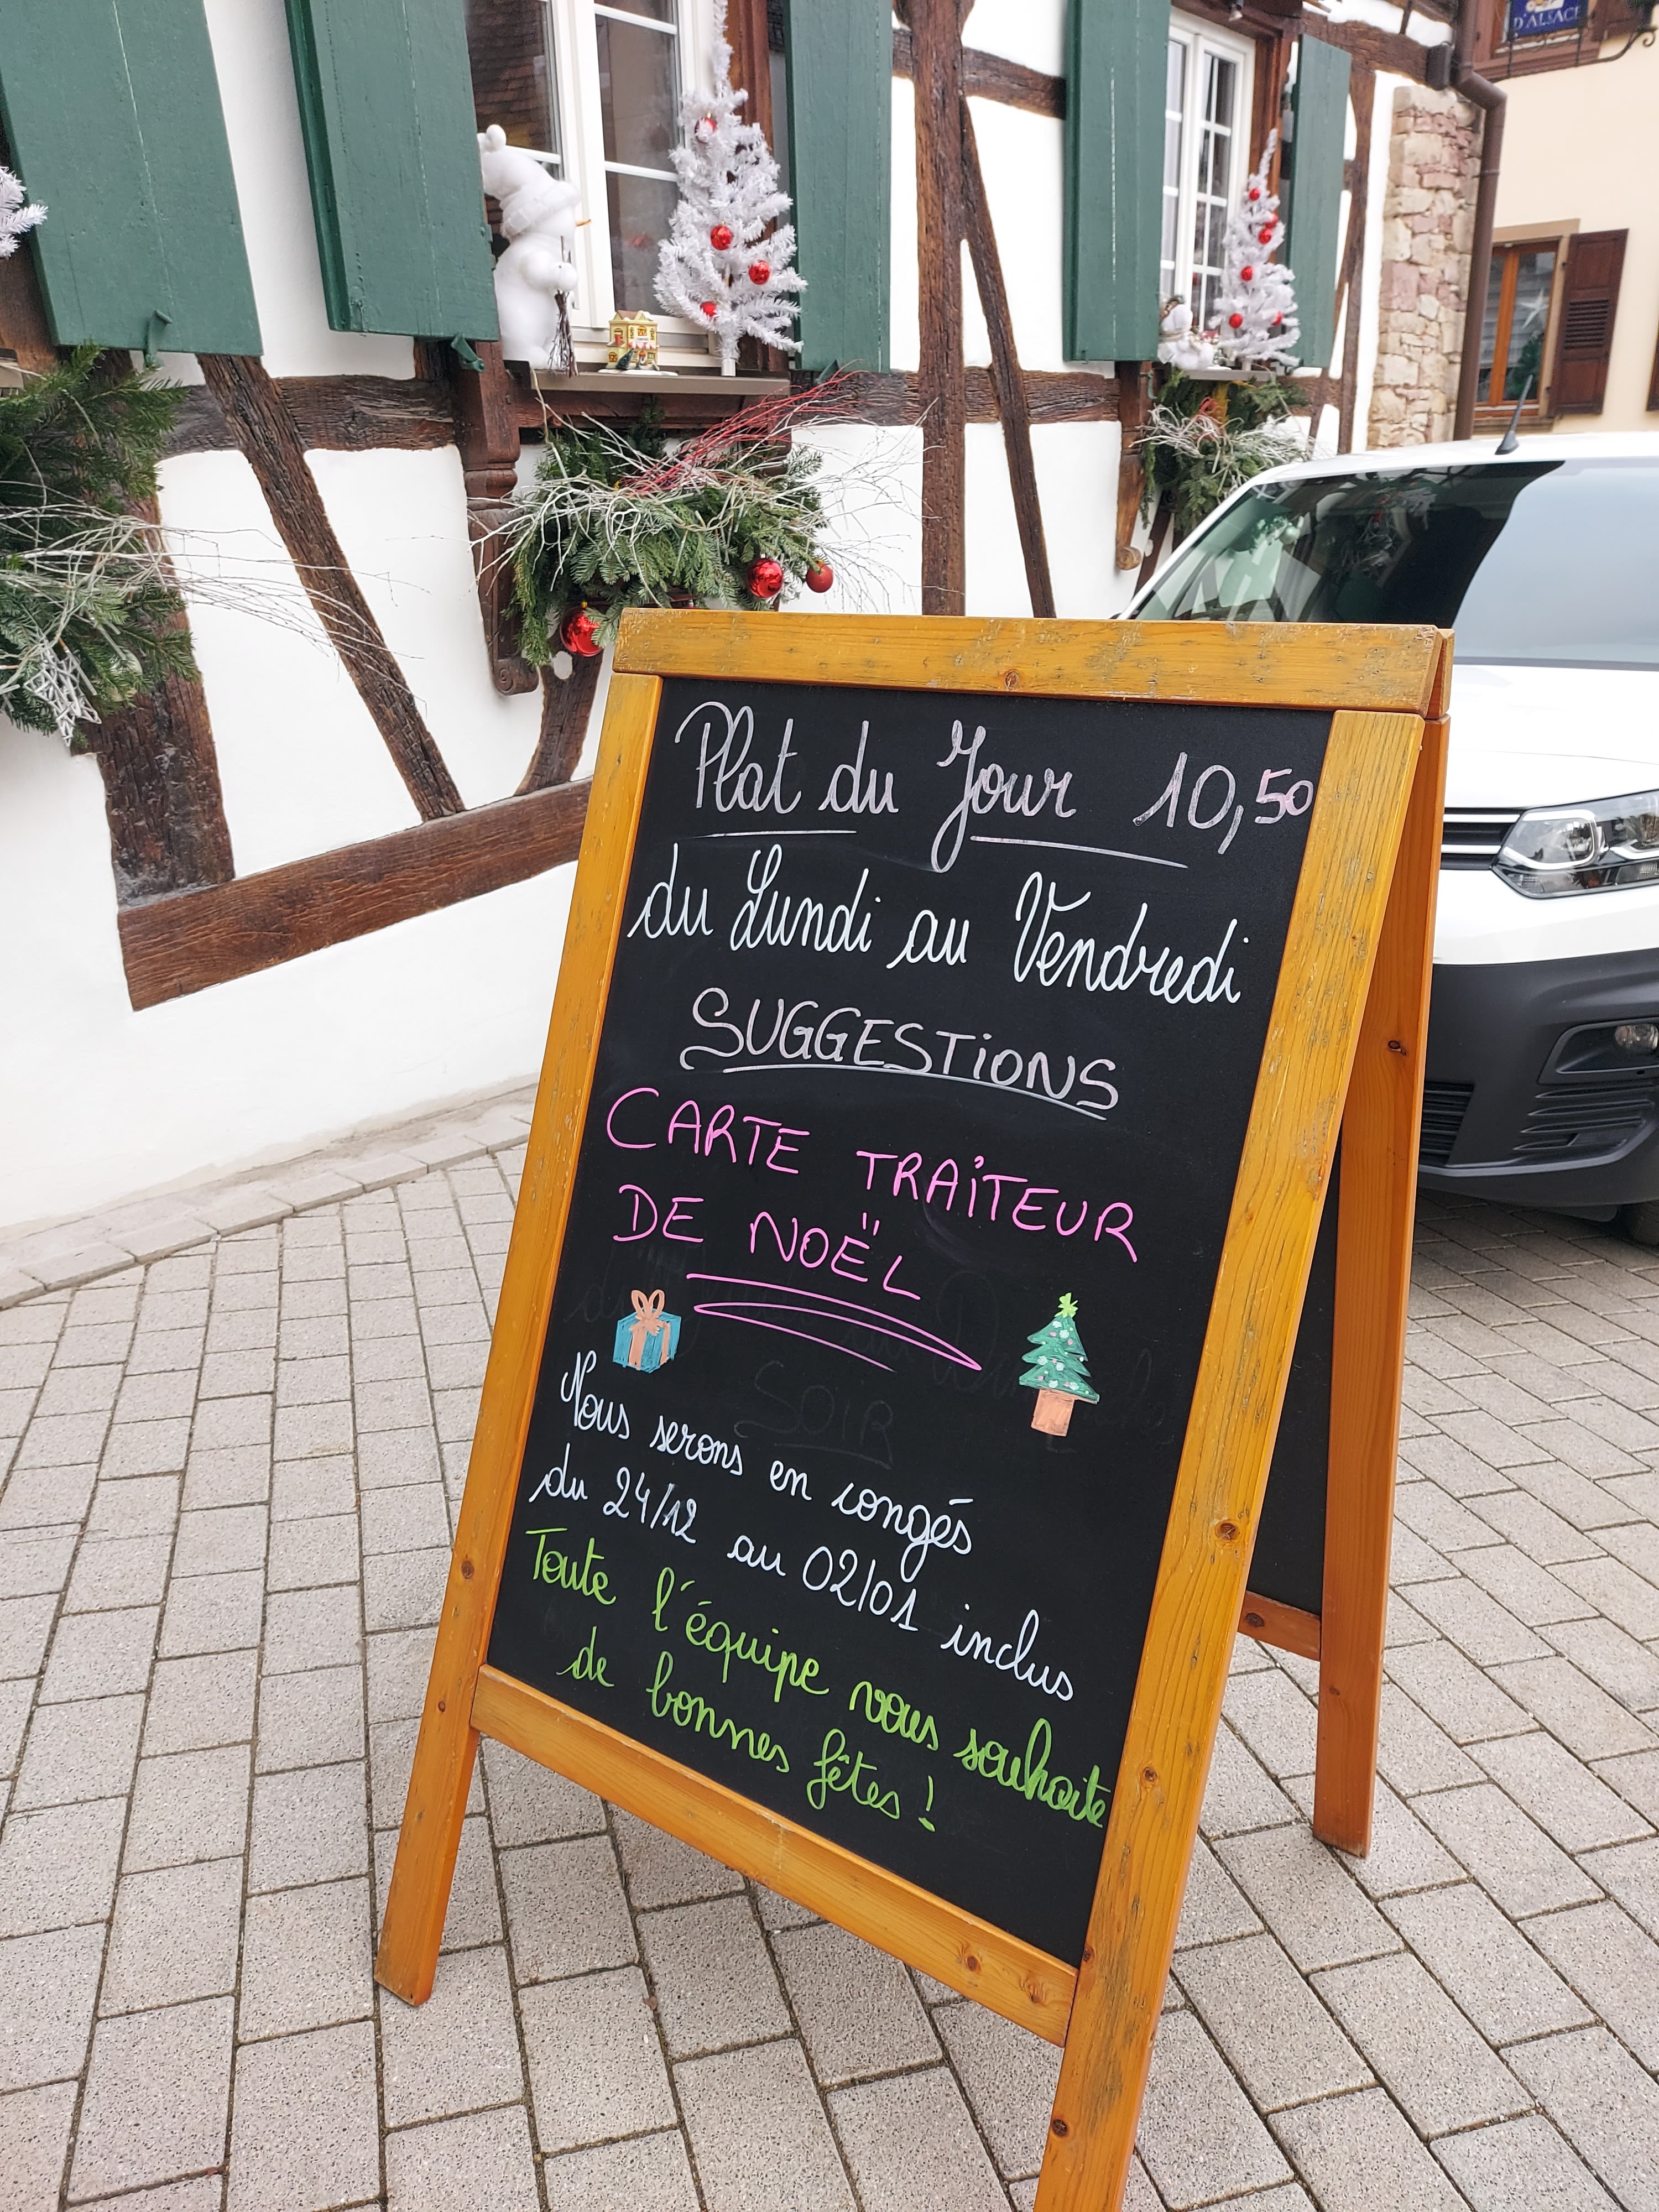 D'ALSACE
Plat du Jour 10,50
du Lundi au Vendredi
SUGGESTIONS
CARTE TRAITEUR
DE NOËL
SOIR
Nous serons en congés
du 24/12 au 02/01 inclus
Toute l'équipe vous souhaite
de bonnes fêtes !